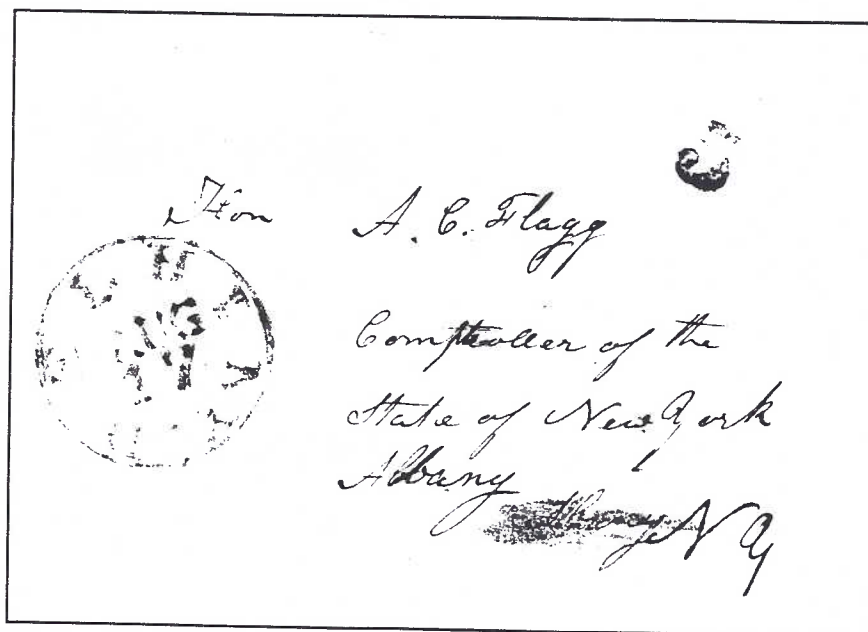 Hon A. C. Flagg
Comptroller of the
State of New York
Albany
N Y